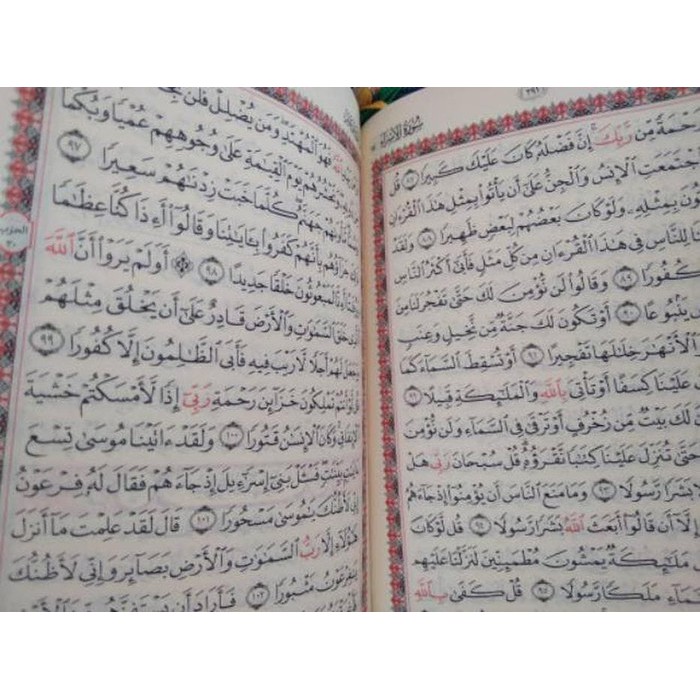 ٢٩١
سورة الإسراء
رَحْمَةً مِّن رَّبِّكَ إِنَّ فَضْلَهُ كَانَ عَلَيْكَ كَبِيرًا ٨٧ قُل
ٱجْتَمَعَتِ ٱلْإِنسُ وَٱلْجِنُّ عَلَىٰٓ أَن يَأْتُوا۟ بِمِثْلِ هَٰذَا ٱلْقُرْءَانِ
يَأْتُونَ بِمِثْلِهِۦ وَلَوْ كَانَ بَعْضُهُمْ لِبَعْضٍ ظَهِيرًا ٨٨ وَلَقَدْ
لِلنَّاسِ فِى هَٰذَا ٱلْقُرْءَانِ مِن كُلِّ مَثَلٍ فَأَبَىٰٓ أَكْثَرُ ٱلنَّاسِ
كُفُورًا ٨٩ وَقَالُوا۟ لَن نُّؤْمِنَ لَكَ حَتَّىٰ تَفْجُرَ لَنَا
يَنۢبُوعًا ٩٠ أَوْ تَكُونَ لَكَ جَنَّةٌ مِّن نَّخِيلٍ وَعِنَبٍ
ٱلْأَنْهَٰرَ خِلَٰلَهَا تَفْجِيرًا ٩١ أَوْ تُسْقِطَ ٱلسَّمَآءَ كَمَا
عَلَيْنَا كِسَفًا أَوْ تَأْتِىَ بِٱللَّهِ وَٱلْمَلَٰٓئِكَةِ قَبِيلًا ٩٢
لَكَ بَيْتٌ مِّن زُخْرُفٍ أَوْ تَرْقَىٰ فِى ٱلسَّمَآءِ وَلَن نُّؤْمِنَ
حَتَّىٰ تُنَزِّلَ عَلَيْنَا كِتَٰبًا نَّقْرَؤُهُۥ قُلْ سُبْحَانَ رَبِّى هَلْ
بَشَرًا رَّسُولًا ٩٣ وَمَا مَنَعَ ٱلنَّاسَ أَن يُؤْمِنُوٓا۟ إِذْ جَآءَهُمُ
إِلَّآ أَن قَالُوٓا۟ أَبَعَثَ ٱللَّهُ بَشَرًا رَّسُولًا ٩٤ قُل لَّوْ كَانَ
مَلَٰٓئِكَةٌ يَمْشُونَ مُطْمَئِنِّينَ لَنَزَّلْنَا عَلَيْهِم
ٱلسَّمَآءِ مَلَكًا رَّسُولًا ٩٥ قُلْ كَفَىٰ بِٱللَّهِ
فَهُوَ ٱلْمُهْتَدِ وَمَن يُضْلِلْ فَلَن تَجِدَ
وَنَحْشُرُهُمْ يَوْمَ ٱلْقِيَٰمَةِ عَلَىٰ وُجُوهِهِمْ عُمْيًا وَبُكْمًا
جَهَنَّمُ كُلَّمَا خَبَتْ زِدْنَٰهُمْ سَعِيرًا ٩٧
جَزَآؤُهُم بِأَنَّهُمْ كَفَرُوا۟ بِـَٔايَٰتِنَا وَقَالُوٓا۟ أَءِذَا كُنَّا عِظَٰمًا
لَمَبْعُوثُونَ خَلْقًا جَدِيدًا ٩٨ أَوَلَمْ يَرَوْا۟ أَنَّ ٱللَّهَ
ٱلَّذِى خَلَقَ ٱلسَّمَٰوَٰتِ وَٱلْأَرْضَ قَادِرٌ عَلَىٰٓ أَن يَخْلُقَ مِثْلَهُمْ
وَجَعَلَ لَهُمْ أَجَلًا لَّا رَيْبَ فِيهِ فَأَبَى ٱلظَّٰلِمُونَ إِلَّا كُفُورًا ٩٩
قُل لَّوْ أَنتُمْ تَمْلِكُونَ خَزَآئِنَ رَحْمَةِ رَبِّىٓ إِذًا لَّأَمْسَكْتُمْ خَشْيَةَ
ٱلْإِنفَاقِ وَكَانَ ٱلْإِنسَٰنُ قَتُورًا ١٠٠ وَلَقَدْ ءَاتَيْنَا مُوسَىٰ تِسْعَ
ءَايَٰتٍۭ بَيِّنَٰتٍ فَسْـَٔلْ بَنِىٓ إِسْرَٰٓءِيلَ إِذْ جَآءَهُمْ فَقَالَ لَهُۥ فِرْعَوْنُ
إِنِّى لَأَظُنُّكَ يَٰمُوسَىٰ مَسْحُورًا ١٠١ قَالَ لَقَدْ عَلِمْتَ مَآ أَنزَلَ
هَٰٓؤُلَآءِ إِلَّا رَبُّ ٱلسَّمَٰوَٰتِ وَٱلْأَرْضِ بَصَآئِرَ وَإِنِّى لَأَظُنُّكَ
يَٰفِرْعَوْنُ مَثْبُورًا ١٠٢ فَأَرَادَ أَن يَسْتَفِزَّهُم
الحزب
٣٠